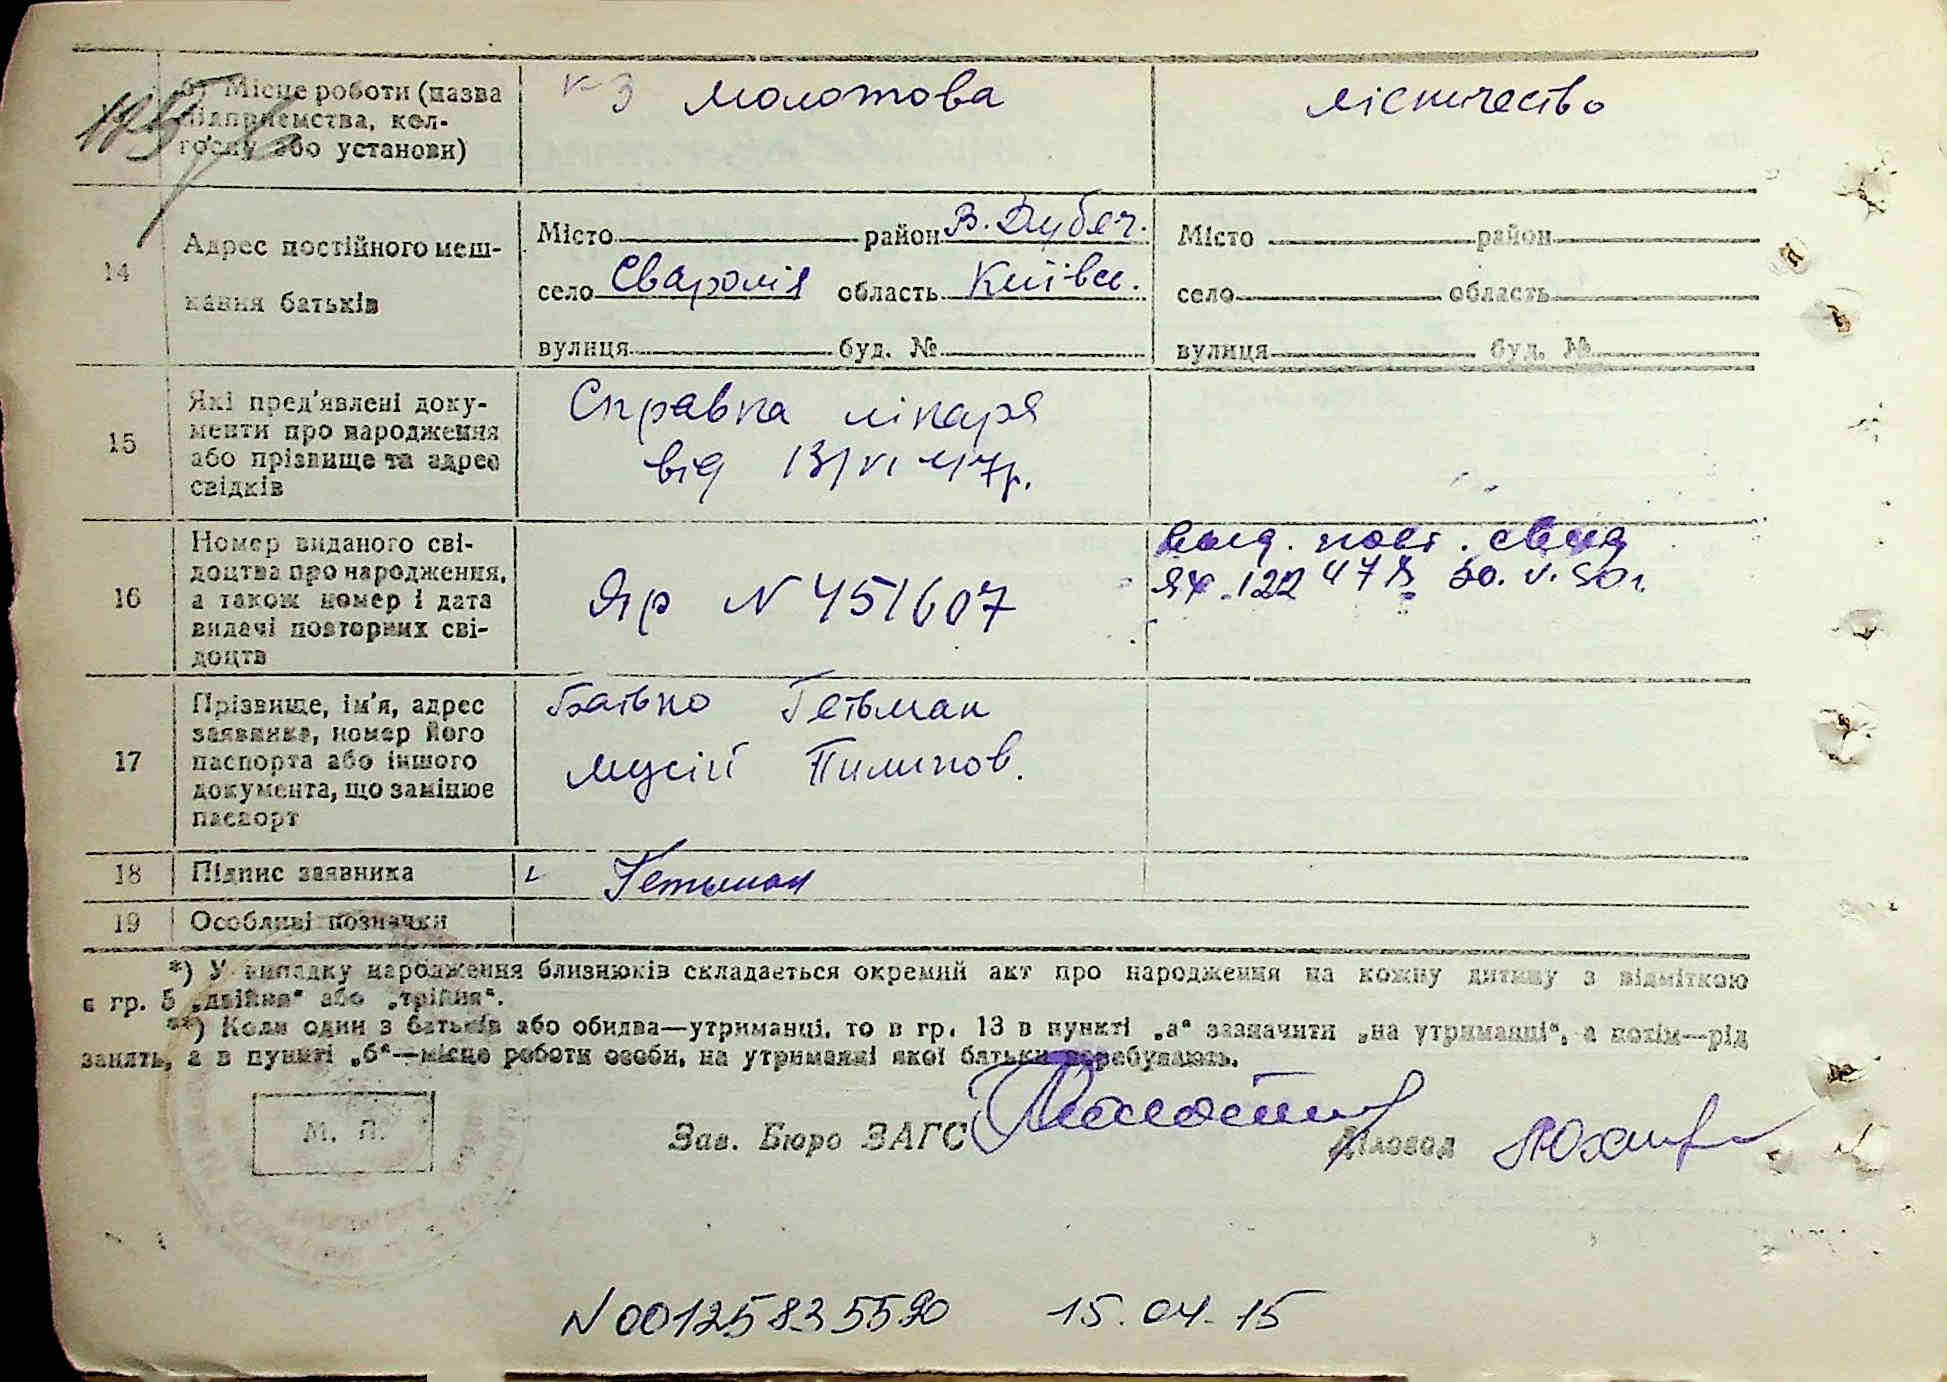 б) Місце роботи (назва
підприємства, кол-
госпу або установи)
к-з Молотова
лісничество
14
Адрес постійного меш-
кання батьків
Місто район В. Дубеч.
село Сваромія область Київськ.
вулиця буд. №
Місто район
село область
вулиця буд. №
15
Які пред'явлені доку-
менти про народження
або прізвище та адрес
свідків
Справка лікаря
від 13/VI 47р.
16
Номер виданого сві-
доцтва про народження,
а також номер і дата
видачі повторних сві-
доцтв
Яр N 451607
выд. повт. свид
30. V. 50г.
17
Прізвище, ім'я, адрес
заявника, номер його
паспорта або іншого
документа, що замінює
паспорт
Батько Гетьман
Мусій Пилипов.
18
Підпис заявника
Гетьман
19
Особливі позначки
*) У випадку народження близнюків складається окремий акт про народження на кожну дитину з відміткою
в гр. 5 „двійня“ або „трійня“.
**) Коли один з батьків або обидва—утриманці, то в гр. 13 в пункті „а“ зазначити „на утриманні“, а потім—рід
занять, а в пункті „б“—місце роботи особи, на утриманні якої батьки перебувають.
М. П.
Зав. Бюро ЗАГС
Діловод
N00125835590 15.04.15